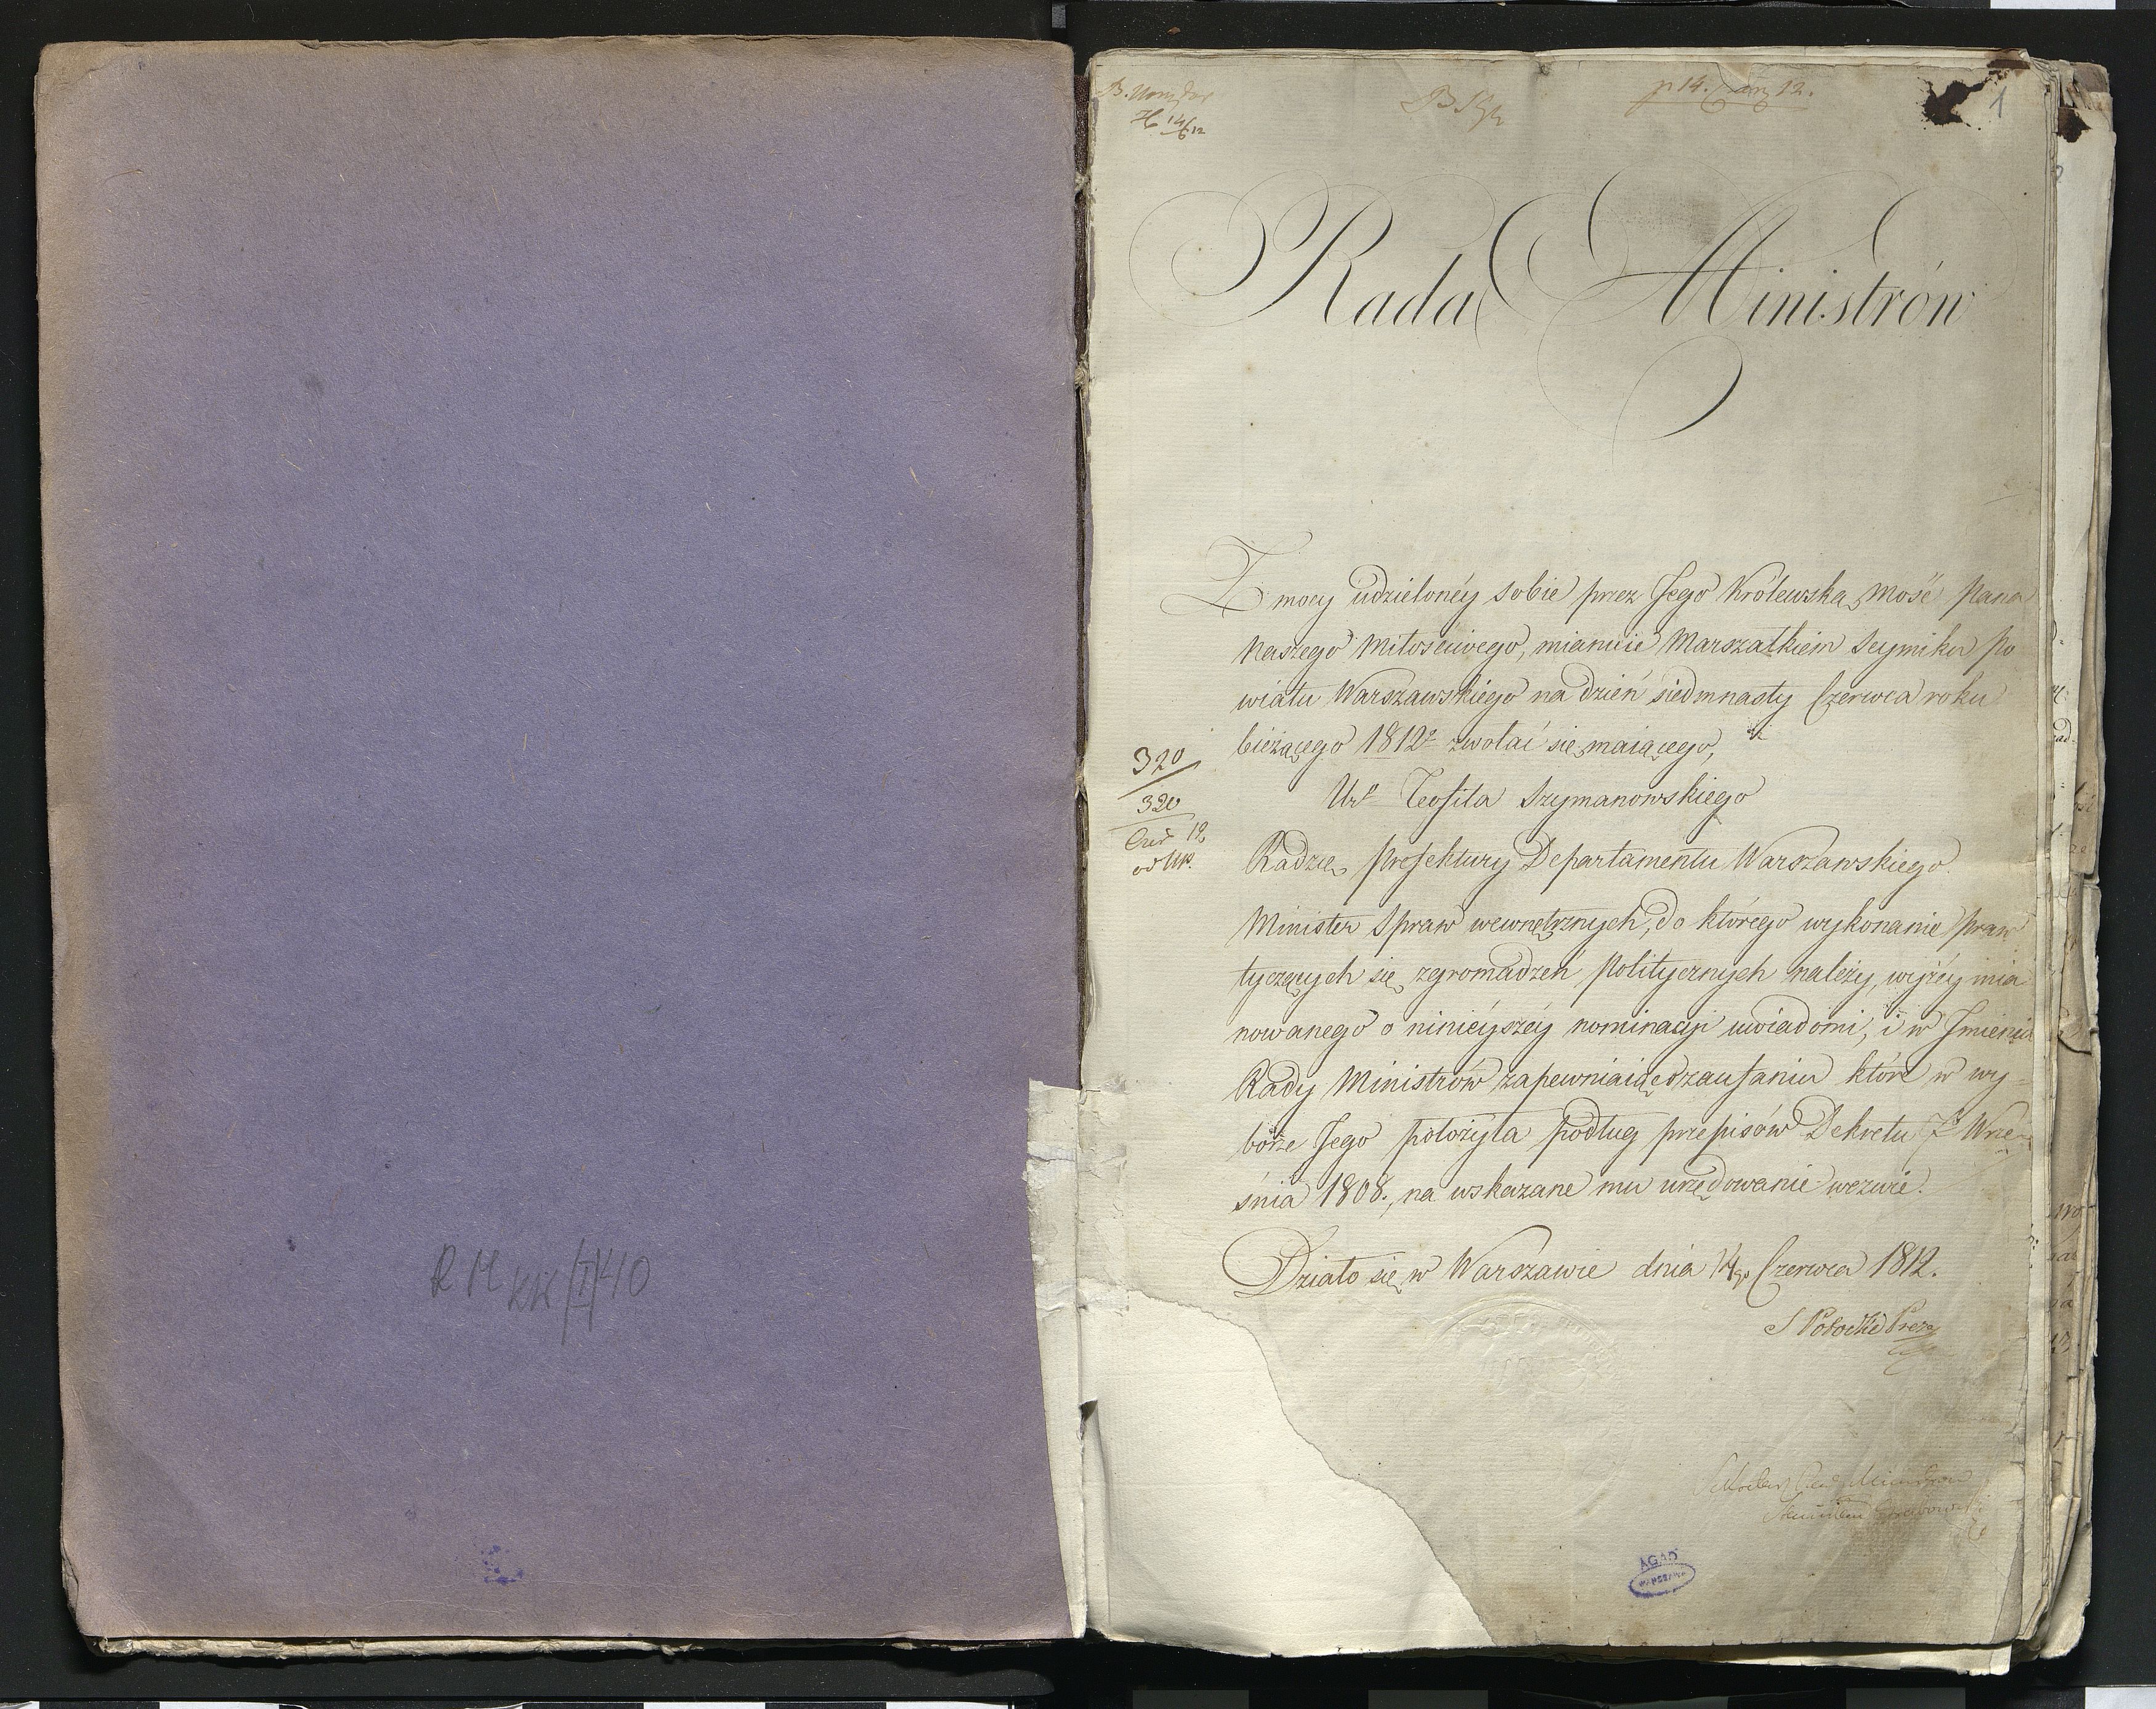 R M KK/I/410
p 14. Czerw 12.
1
Rada Ministrów
Z mocy udzielonéy sobie przez Jego Królewską Mość Pana
Naszego Miłościwego, mianuie Marszałkiem Seymiku Po
wiatu Warszawskiego na dzień siedmnasty Czerwca roku
bieżącego 1812 r. zwołać się maiącego,
Ur. Teofila Szymanowskiego
Radzcę Prefektury Departamentu Warszawskiego.
Minister Spraw wewnętrznych, do którego wykonanie praw
tyczących się zgromadzeń Politycznych należy, wyżéy mia
nowanego o ninieyszéy nominacyi uwiadomi, i w Imieniu
Rady Ministrów zapewniaiąc o zaufaniu które w wy=
borze Jego położyła podług przepisów Dekretu 7o Wrze=
śnia 1808., na wskazane mu urzędowanie wezwie.
Działo się w Warszawie dnia 14go Czerwca 1812.
S Potocki Prez
320
320
od UP.
Sekretarz Rady Ministrów
Stanisław Grabowski
AGAD
WARSZAWA